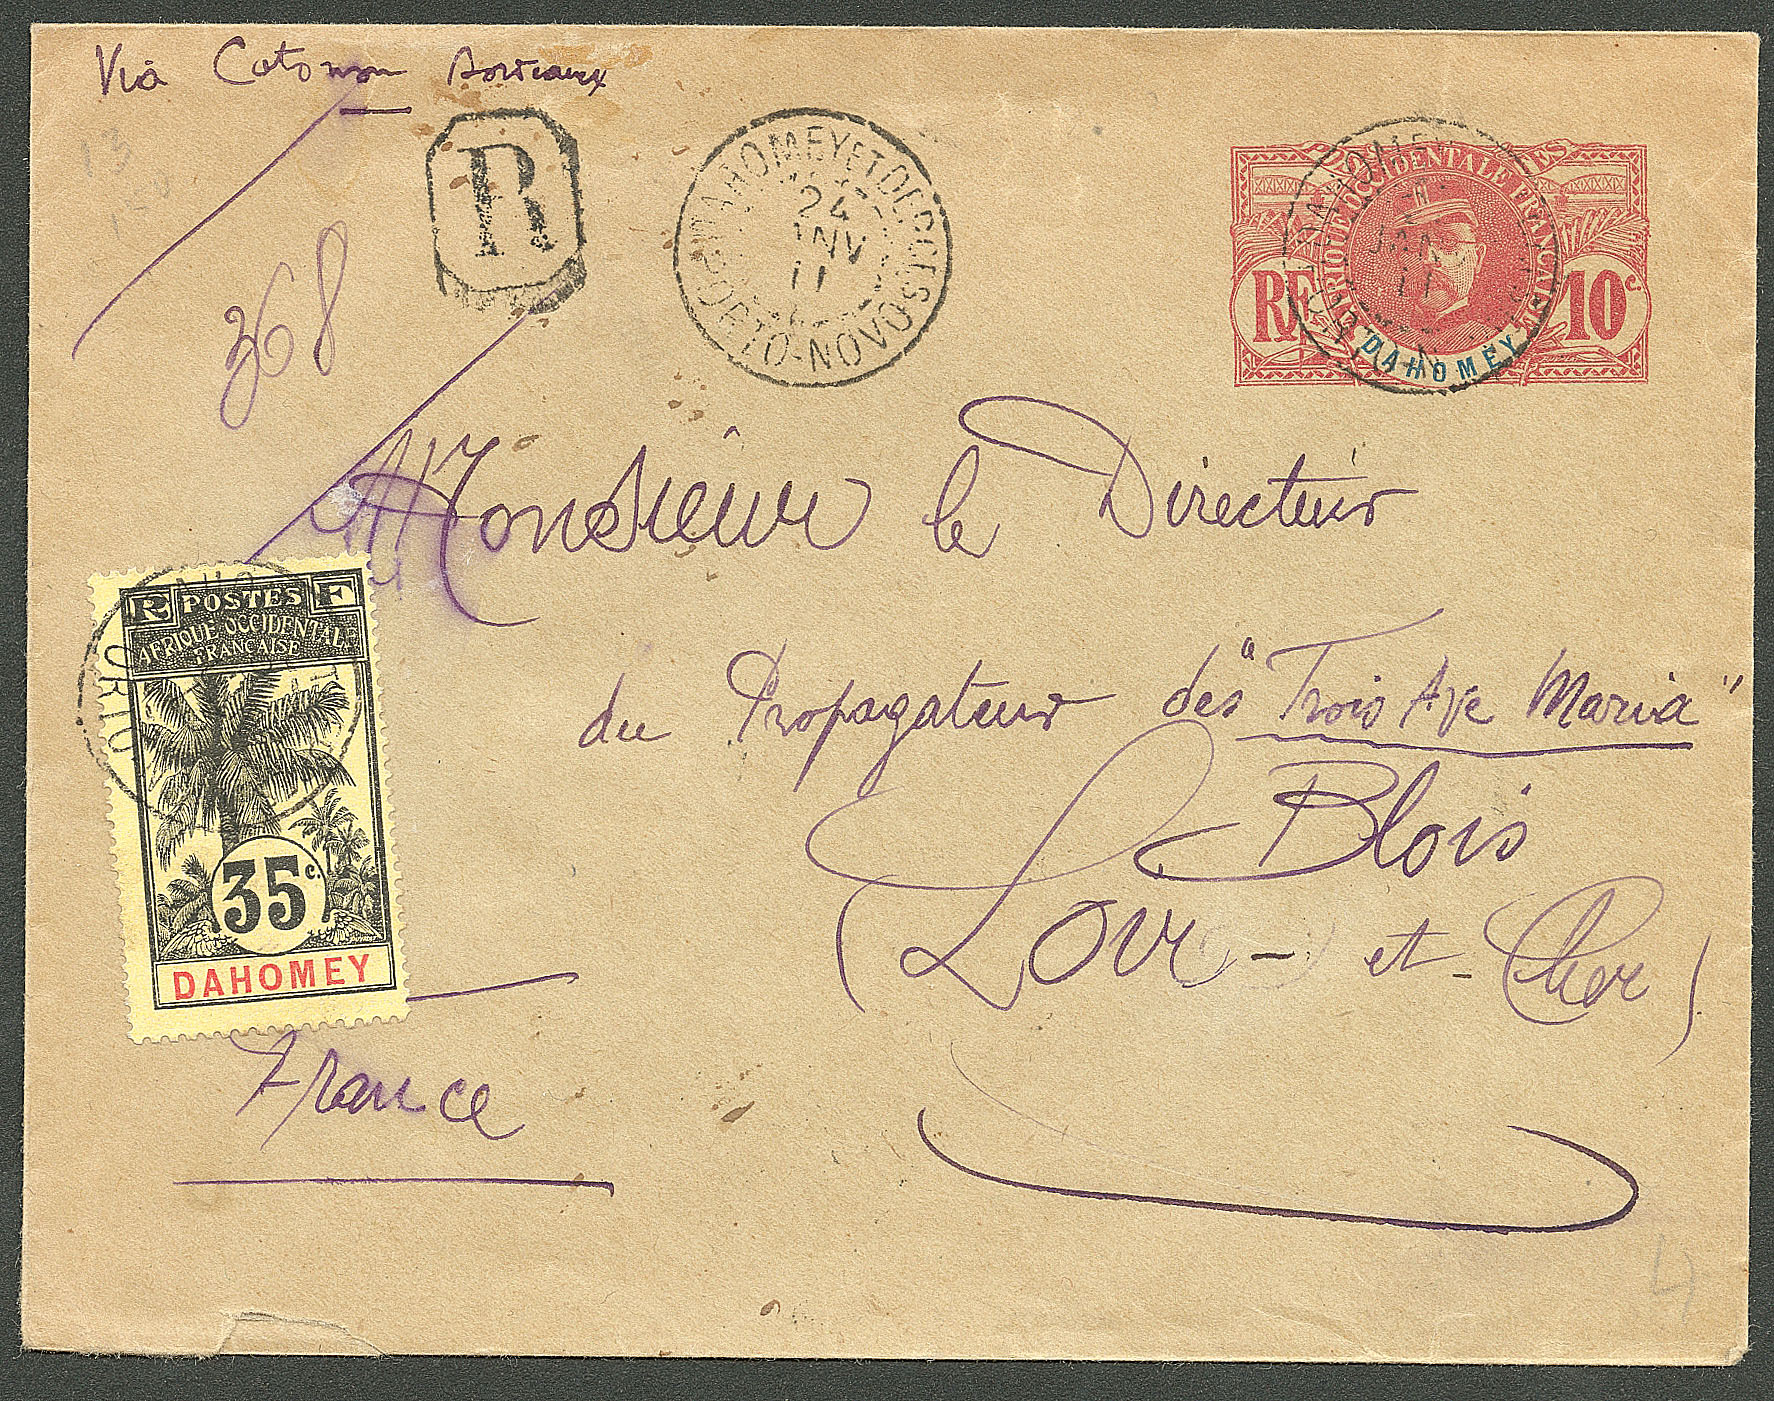 Via Cotonou Bordeaux
R
368
DAHOMEY ET DEPCES
24
JANV
11
PORTO-NOVO
AFRIQUE OCCIDENTALE FRANÇAISE
RF
10 c.
DAHOMEY
JANV
11
Monsieur le Directeur
du Propagateur des "Trois Ave Maria"
Blois
(Loir-et-Cher)
R POSTES F
AFRIQUE OCCIDENTALE
FRANÇAISE
35 c.
DAHOMEY
PORTO
France
4